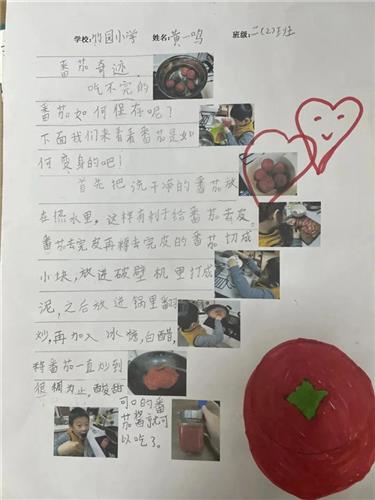 学校:竹园小学 姓名:黄一鸣 班级:二(2)班
番茄奇迹
吃不完的
番茄如何保存呢?
下面我们来看看番茄是如
何变身的吧!
首先把洗干净的番茄放
在热水里,这样有利于给番茄去皮。
番茄去完皮再将去完皮的番茄切成
小块,放进破壁机里打成
泥,之后放进锅里翻
炒,再加入冰糖,白醋,
将番茄一直炒到
很稠为止,酸甜
可口的番
茄酱就可
以吃了。